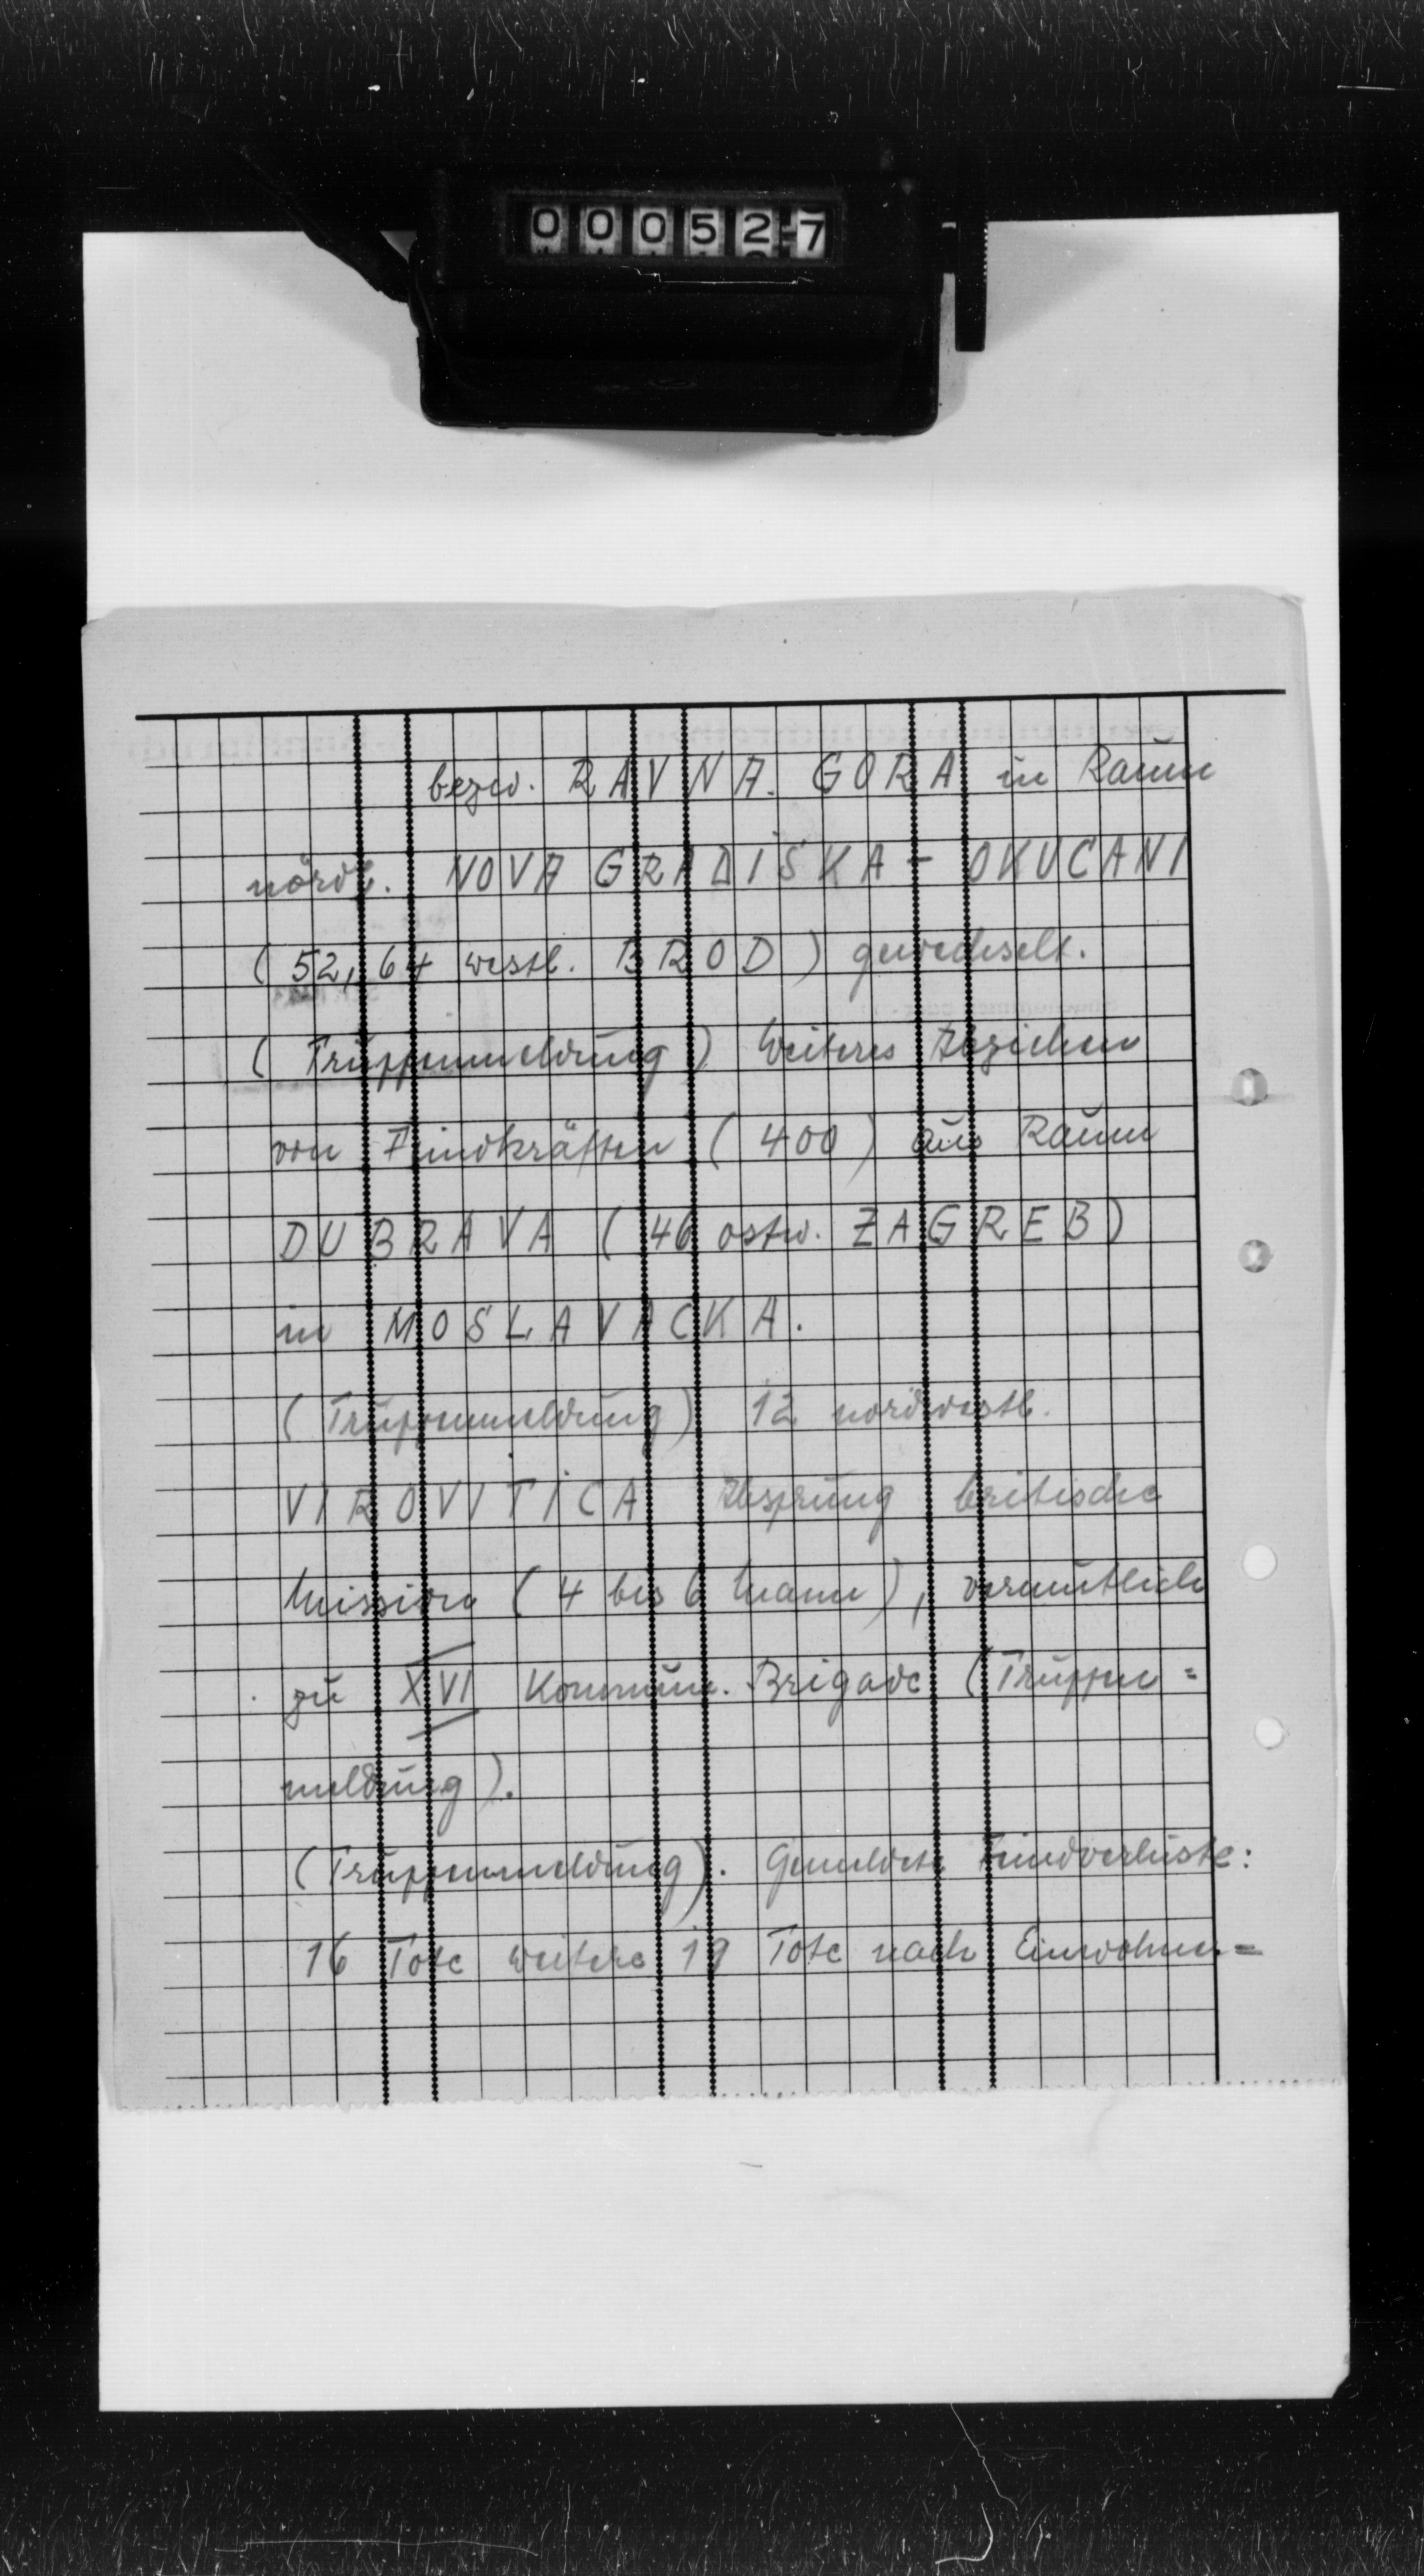 000527
bezw. RAVNA GORA in Raum
nördl. NOVA GRADISKA - OKUCANI
(52, 64 westl. BROD) gewechselt.
(Truppenmeldung) Weiteres Abziehen
von Feindkräften (400) aus Raum
DUBRAVA (46 ostw. ZAGREB)
in MOSLAVACKA.
(Truppenmeldung) 12 nordwestl.
VIROVITICA Absprung britische
Mission (4 bis 6 Mann), vermutlich
zu XVI Kommun. Brigade (Truppen=
meldung).
(Truppenmeldung). Gemeldete Feindverluste:
16 Tote weitere 19 Tote nach Einwohner=